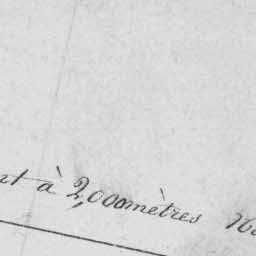 à 2,000 mètres